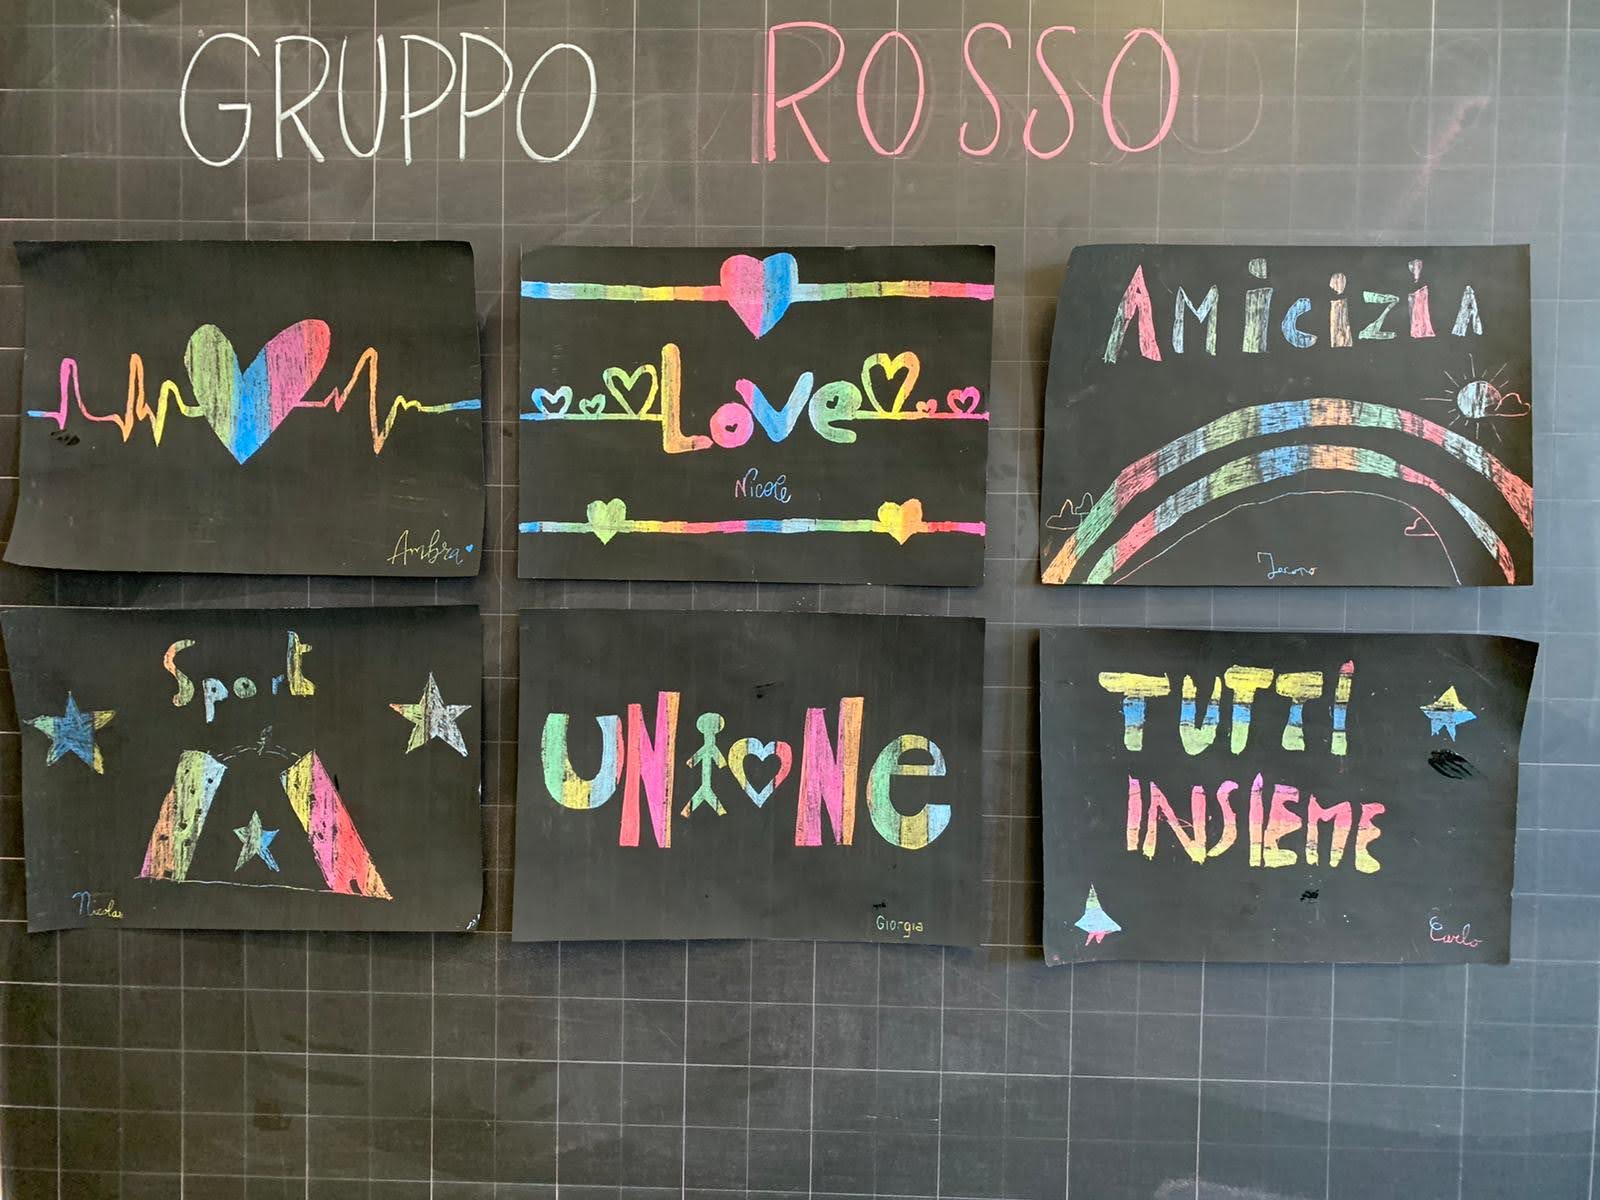 GRUPPO ROSSO
Ambra
Love
Nicole
AMiciziA
Sport
Nicolas
UNiONe
Giorgia
TUTTI
INSIEME
Carlo